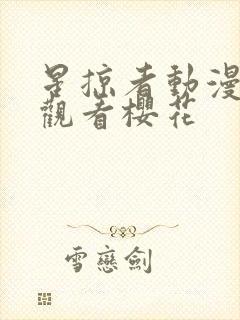 星掠者動漫
觀看櫻花
雪戀劍